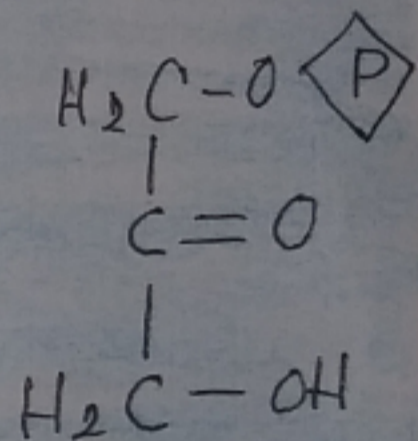 H₂C-O P
C=O
H₂C-OH